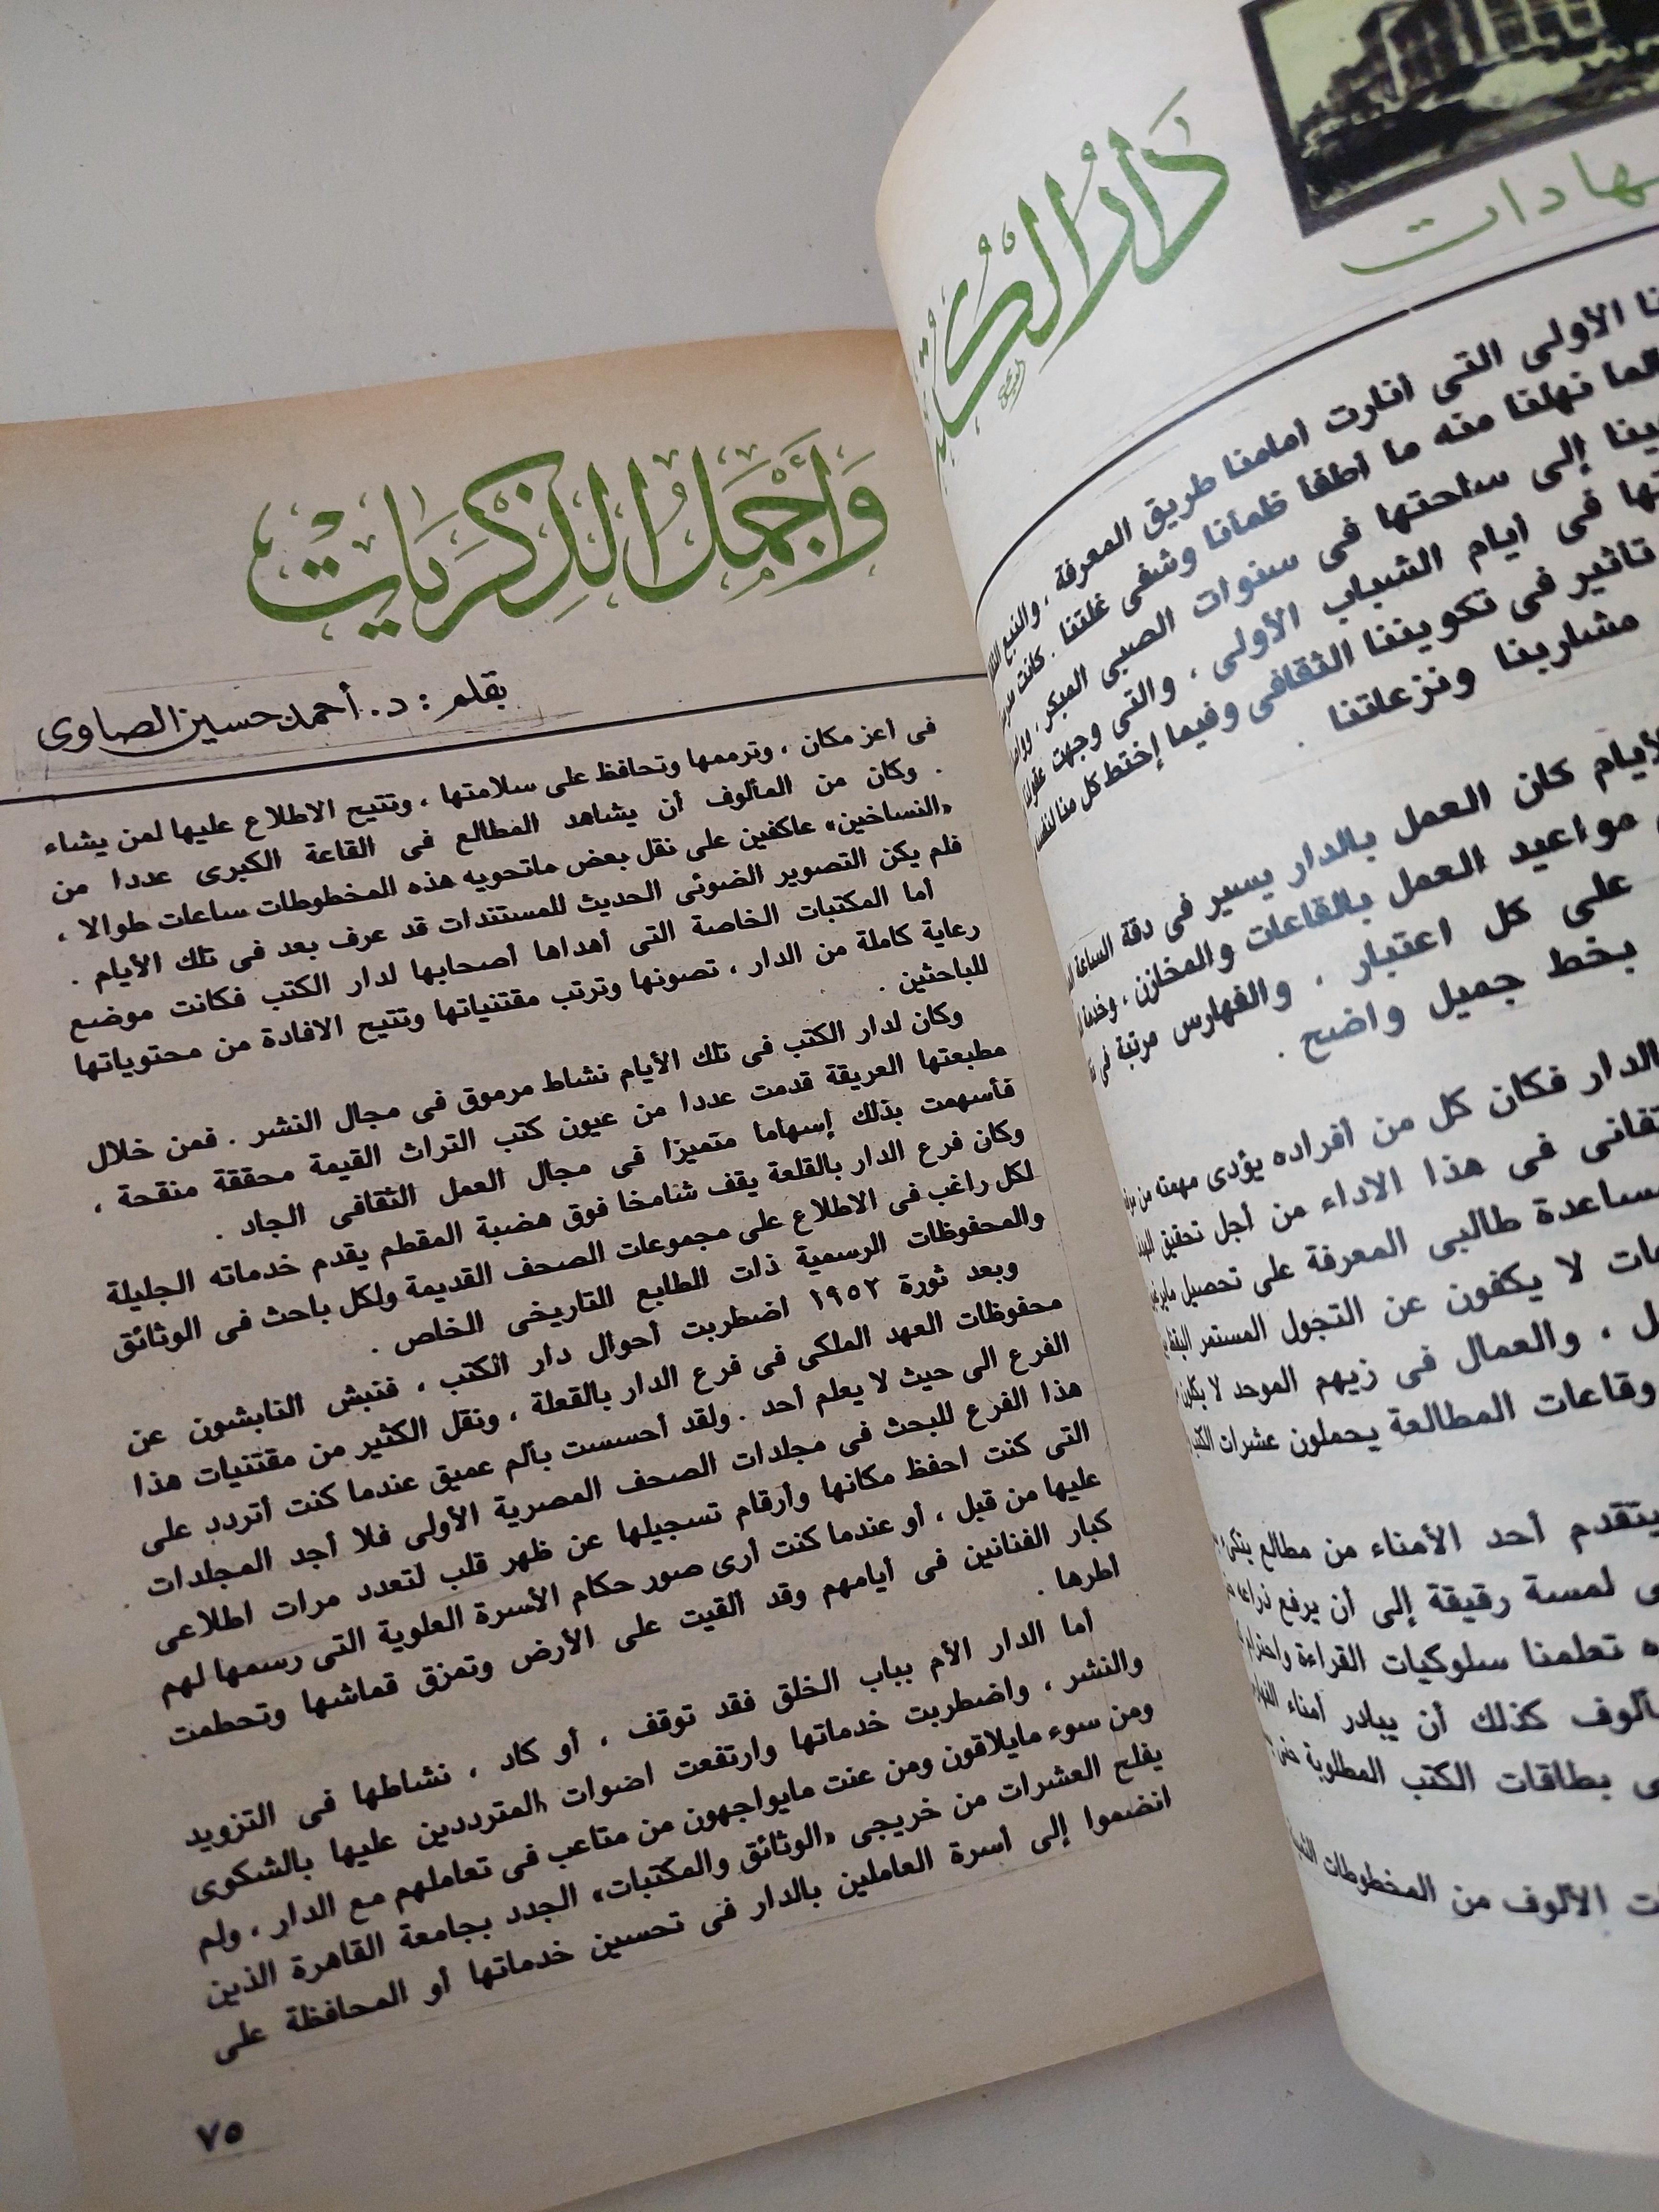 شهادات
دَارُ الكُتُب
نا الأولى التى أنارت أمامنا طريق المعرفة ، والنبع
لما نهلنا منه ما أطفأ ظمأنا وشفى غلتنا . كانت
ينا إلى ساحتها فى سنوات الصبى المبكر ،
تها فى أيام الشباب الأولى ، والتى وجهت عقولنا
تأثير فى تكويننا الثقافى وفيما إختط كل منا لنفسه
مشاربنا ونزعاتنا .
الأيام كان العمل بالدار يسير فى دقة الساعة
مواعيد العمل بالقاعات والمخازن ،
على كل اعتبار . والفهارس مرتبة فى
بخط جميل واضح .
الدار فكان كل من أفراده يؤدى مهمته من
تفانى فى هذا الاداء من أجل تحقيق
مساعدة طالبى المعرفة على تحصيل
ات لا يكفون عن التجول المستمر
ل ، والعمال فى زيهم الموحد لا
وقاعات المطالعة يحملون عشرات الكتب
يتقدم أحد الأمناء من مطالع
ى لمسة رقيقة إلى أن يرفع ذراعه
ه تعلمنا سلوكيات القراءة واحترام
ألوف كذلك أن يبادر أمناء
ى بطاقات الكتب المطلوبة
ت الألوف من المخطوطات
وَأَجْمَلُ الذِّكْرَيَاتْ
بقلم : د. أحمد حسين الصاوى
فى أعز مكان ، وترممها وتحافظ على سلامتها ، وتتيح الاطلاع عليها لمن يشاء
. وكان من المألوف أن يشاهد المطالع فى القاعة الكبرى عددا من
«النساخين» عاكفين على نقل بعض ماتحويه هذه المخطوطات ساعات طوالا ،
فلم يكن التصوير الضوئى الحديث للمستندات قد عرف بعد فى تلك الأيام .
أما المكتبات الخاصة التى أهداها أصحابها لدار الكتب فكانت موضع
رعاية كاملة من الدار ، تصونها وترتب مقتنياتها وتتيح الافادة من محتوياتها
للباحثين .
وكان لدار الكتب فى تلك الأيام نشاط مرموق فى مجال النشر . فمن خلال
مطبعتها العريقة قدمت عددا من عيون كتب التراث القيمة محققة منقحة ،
فأسهمت بذلك إسهاما متميزا فى مجال العمل الثقافى الجاد .
وكان فرع الدار بالقلعة يقف شامخا فوق هضبة المقطم يقدم خدماته الجليلة
لكل راغب فى الاطلاع على مجموعات الصحف القديمة ولكل باحث فى الوثائق
والمحفوظات الرسمية ذات الطابع التاريخى الخاص .
وبعد ثورة ١٩٥٢ اضطربت أحوال دار الكتب ، فنبش النابشون عن
محفوظات العهد الملكى فى فرع الدار بالقلعة ، ونقل الكثير من مقتنيات هذا
الفرع الى حيث لا يعلم أحد . ولقد أحسست بألم عميق عندما كنت أتردد على
هذا الفرع للبحث فى مجلدات الصحف المصرية الأولى فلا أجد المجلدات
التى كنت احفظ مكانها وأرقام تسجيلها عن ظهر قلب لتعدد مرات اطلاعى
عليها من قبل ، أو عندما كنت أرى صور حكام الأسرة العلوية التى رسمها لهم
كبار الفنانين فى أيامهم وقد ألقيت على الأرض وتمزق قماشها وتحطمت
أطرها .
أما الدار الأم بباب الخلق فقد توقف ، أو كاد ، نشاطها فى التزويد
والنشر ، واضطربت خدماتها وارتفعت اضوات المترددين عليها بالشكوى
ومن سوء مايلاقون ومن عنت مايواجهون من متاعب فى تعاملهم مع الدار ، ولم
يفلح العشرات من خريجى «الوثائق والمكتبات» الجدد بجامعة القاهرة الذين
انضموا إلى أسرة العاملين بالدار فى تحسين خدماتها أو المحافظة على
٧٥